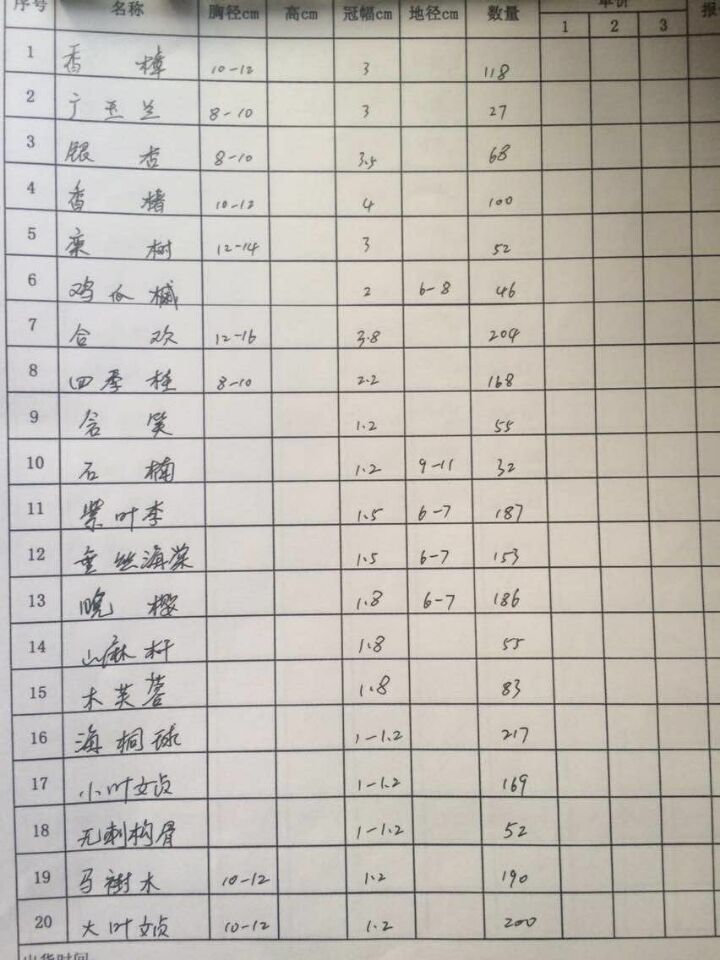 序号 名称 胸径cm 高cm 冠幅cm 地径cm 数量 单价 报
1 2 3
1 香樟 10-12 3 118
2 广玉兰 8-10 3 27
3 银杏 8-10 3.5 68
4 香椿 10-12 4 100
5 栾树 12-14 3 52
6 鸡爪槭 2 6-8 46
7 合欢 12-16 3.8 204
8 四季桂 8-10 2.2 168
9 含笑 1.2 55
10 石楠 1.2 9-11 32
11 紫叶李 1.5 6-7 187
12 垂丝海棠 1.5 6-7 153
13 晚樱 1.8 6-7 186
14 山麻杆 1.8 55
15 木芙蓉 1.8 83
16 海桐球 1-1.2 217
17 小叶女贞 1-1.2 169
18 无刺构骨 1-1.2 52
19 马褂木 10-12 1.2 190
20 大叶女贞 10-12 1.2 200
出货时间